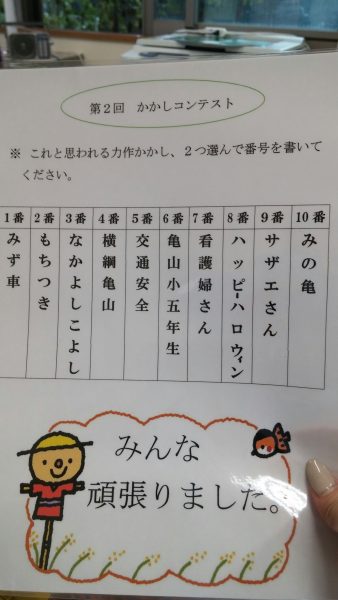 第２回　かかしコンテスト
※ これと思われる力作かかし、２つ選んで番号を書いて
ください。
1番 2番 3番 4番 5番 6番 7番 8番 9番 10番
みず車
もちつき
なかよしこよし
横綱亀山
交通安全
亀山小五年生
看護婦さん
ハッピーハロウィン
サザエさん
みの亀
みんな
頑張りました。